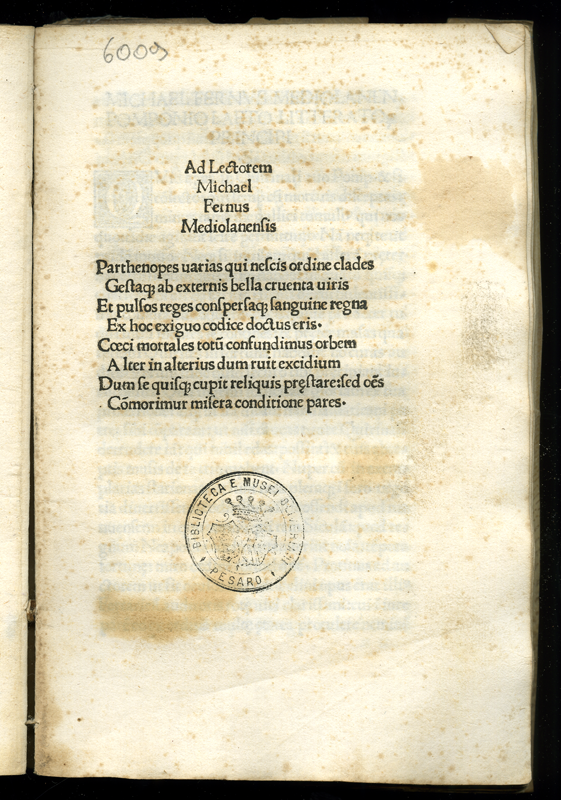 6009
Ad Lectorem
Michael
Fernus
Mediolanensis
Parthenopes uarias qui nescis ordine clades
Gestaqȝ ab externis bella cruenta uiris
Et pulsos reges conspersaqȝ sanguine regna
Ex hoc exiguo codice doctus eris.
Cœci mortales totū confundimus orbem
Alter in alterius dum ruit excidium
Dum se quisqȝ cupit reliquis pręstare:sed oēs
Cōmorimur misera conditione pares.
BIBLIOTECA E MUSEI OLIVERIANI
PESARO